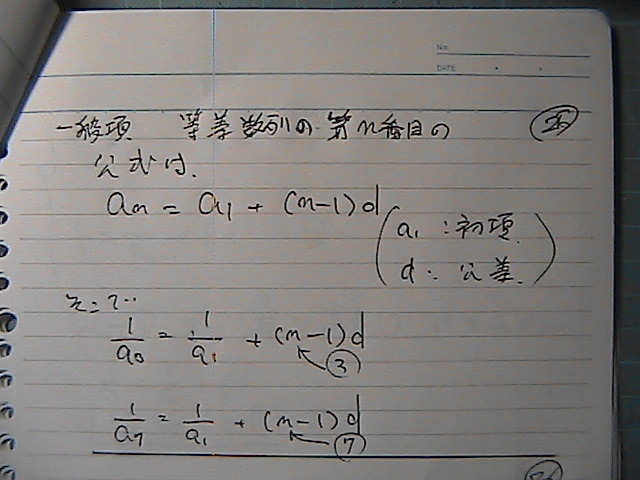 No.
DATE
一般項 等差数列の第n番目の
公式は、
an = a1 + (n-1)d
(a1:初項
d: 公差)
そこで..
1/a3 = 1/a1 + (n-1)d
③
1/a7 = 1/a1 + (n-1)d
⑦